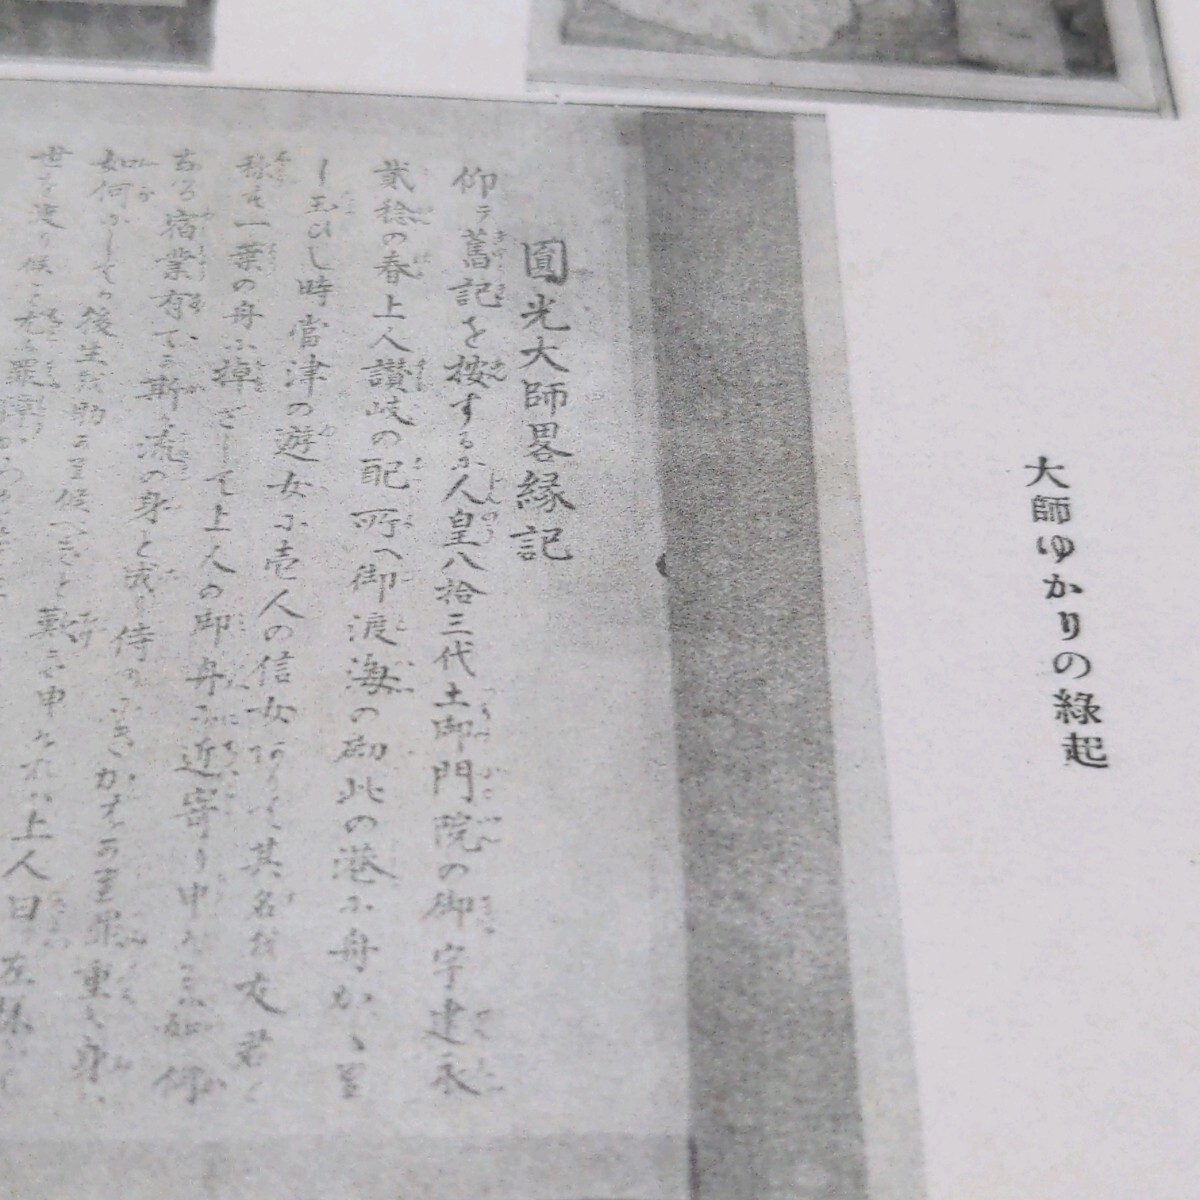 大師ゆかりの緣起
圓光大師畧縁記
仰テ舊記を按するに人皇八拾三代土御門院の御宇建永
貳稔の春上人讃岐の配所へ御渡海の砌此の港に舟かゝり
し玉ひし時當津の遊女に壱人の信女ありて其名を友君と
称す一葉の舟に棹さして上人の御舟に近寄り申
宿業有てか斯る流の身と成り侍
如何がしてか後生を助かり候べきと歎き申されれハ上人曰左様
世を渡り候